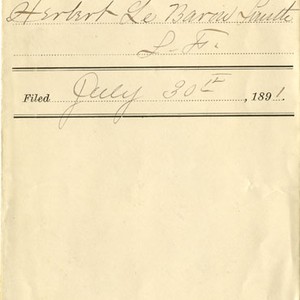 Herbert Le Baron Smith
S. F.
Filed July 30th, 1891.